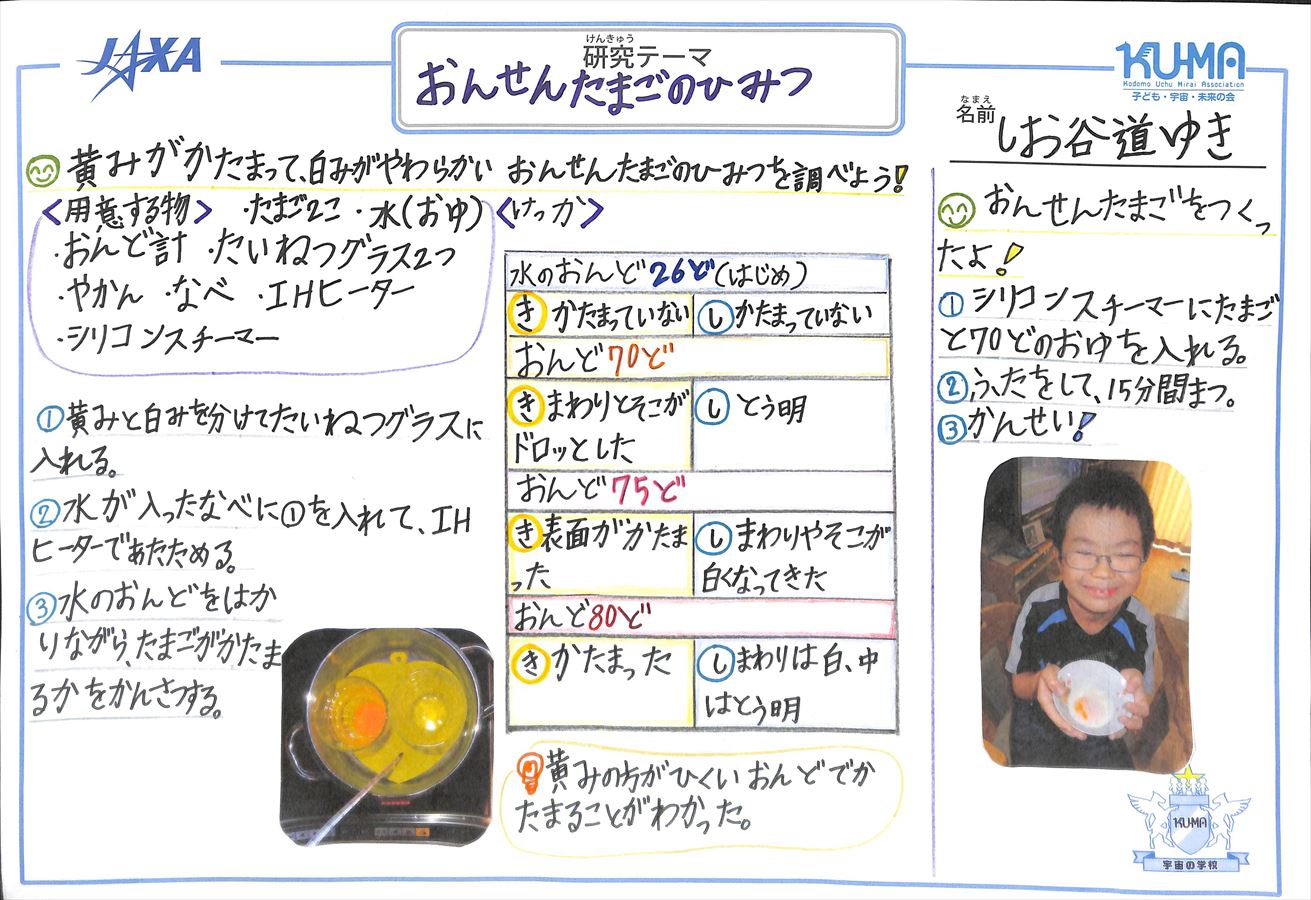 JAXA
けんきゅう
研究テーマ
おんせんたまごのひみつ
KU-MA
Kodomo Uchu Mirai Association
子ども・宇宙・未来の会
なまえ
名前
しお谷道ゆき
黄みがかたまって、白みがやわらかい おんせんたまごのひみつを調べよう!
<用意する物> ・たまご2こ ・水(おゆ)
・おんど計 ・たいねつグラス2つ
・やかん ・なべ ・IHヒーター
・シリコンスチーマー
①黄みと白みを分けてたいねつグラスに
入れる。
②水が入ったなべに①を入れて、IH
ヒーターであたためる。
③水のおんどをはか
りながら、たまごがかたま
るかをかんさつする。
<けっか>
水のおんど26ど(はじめ)
き かたまっていない
し かたまっていない
おんど70ど
き まわりとそこが
ドロッとした
し とう明
おんど75ど
き 表面がかたま
った
し まわりやそこが
白くなってきた
おんど80ど
き かたまった
し まわりは白、中
はとう明
黄みの方がひくいおんどでか
たまることがわかった。
おんせんたまごをつくっ
たよ!
①シリコンスチーマーにたまご
と70どのおゆを入れる。
②ふたをして、15分間まつ。
③かんせい!
KU-MA
宇宙の学校